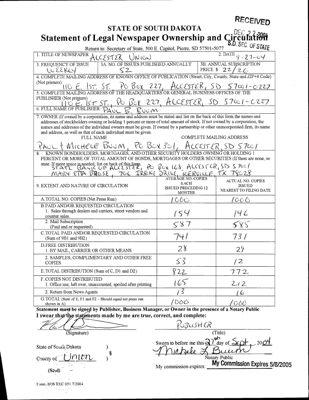 RECEIVED
DEC 22 2004
S.D. SEC OF STATE
STATE OF SOUTH DAKOTA
Statement of Legal Newspaper Ownership and Circulation
Return to: Secretary of State, 500 E. Capitol, Pierre, SD 57501-5077
1. TITLE OF NEWSPAPER ALCESTER UNION
2. DATE 9-27-04
3. FREQUENCY OF ISSUE WEEKLY
3A. NO. OF ISSUES PUBLISHED ANNUALLY 52
3B. ANNUAL SUBSCRIPTION PRICE $ 22/26
4. COMPLETE MAILING ADDRESS OF KNOWN OFFICE OF PUBLICATION (Street, City, County, State and ZIP+4 Code) (Not printer)
110 E. 1ST ST. PO BOX 227, ALCESTER, SD 57001-0227
5. COMPLETE MAILING ADDRESS OF THE HEADQUARTERS OF GENERAL BUSINESS OFFICES OF THE PUBLISHER (Not printer)
110 E. 1ST ST. PO BOX 227, ALCESTER, SD 57001-0227
6. FULL NAME OF PUBLISHER PAUL BUUM
7. OWNER (If owned by a corporation, its name and address must be stated and on the back of this form the names and
addresses of stockholders owning or holding 1 percent or more of total amount of stock. If not owned by a corporation, the
names and addresses of the individual owners must be given. If owned by a partnership or other unincorporated firm, its name
and address, as well as that of each individual must be given.
FULL NAME COMPLETE MAILING ADDRESS
PAUL & MICHELE BUUM, PO BOX 301, ALCESTER, SD 57001
8. KNOWN BONDHOLDERS, MORTGAGES, AND OTHER SECURITY HOLDERS OWNING OR HOLDING 1
PERCENT OR MORE OF TOTAL AMOUNT OF BONDS, MORTGAGES OR OTHER SECURITIES (If there are none, so
state. If more space is needed, list on back of this form)
STATE BANK OF ALCESTER, PO BOX 168 ALCESTER, SD 57001
9. EXTENT AND NATURE OF CIRCULATION
AVERAGE NO. COPIES EACH ISSUED PRECEDING 12 MONTHS
ACTUAL NO. COPIES ISSUED NEAREST TO FILING DATE
A. TOTAL NO. COPIES (Net Press Run) 1000 1000
B. PAID AND/OR REQUESTED CIRCULATION
1. Sales through dealers and carriers, street vendors and counter sales 154 146
2. Mail Subscription (Paid and or requested) 587 585
C. TOTAL PAID AND/OR REQUESTED CIRCULATION (Sum of 9B1 and 9B2) 741 731
D. FREE DISTRIBUTION
1. BY MAIL, CARRIER OR OTHER MEANS 28 29
2. SAMPLES, COMPLIMENTARY AND OTHER FREE COPIES 53 12
E. TOTAL DISTRIBUTION (Sum of C, D1 and D2) 822 772
F. COPIES NOT DISTRIBUTED
1. Office use, left over, unaccounted, spoiled after printing 165 212
2. Return from News Agents 13 16
G. TOTAL (Sum of E, F1 and F2 - Should equal net press run shown in A) 1000 1000
Statement must be signed by Publisher, Business Manager, or Owner in the presence of a Notary Public
I swear that the statements made by me are true, correct, and complete:
PUBLISHER
(Signature) (Title)
State of South Dakota
County of Union
(Seal)
Sworn to before me this 27 day of Sept, 2004
Michele L Buum
Notary Public
My commission expires: My Commission Expires 5/8/2005